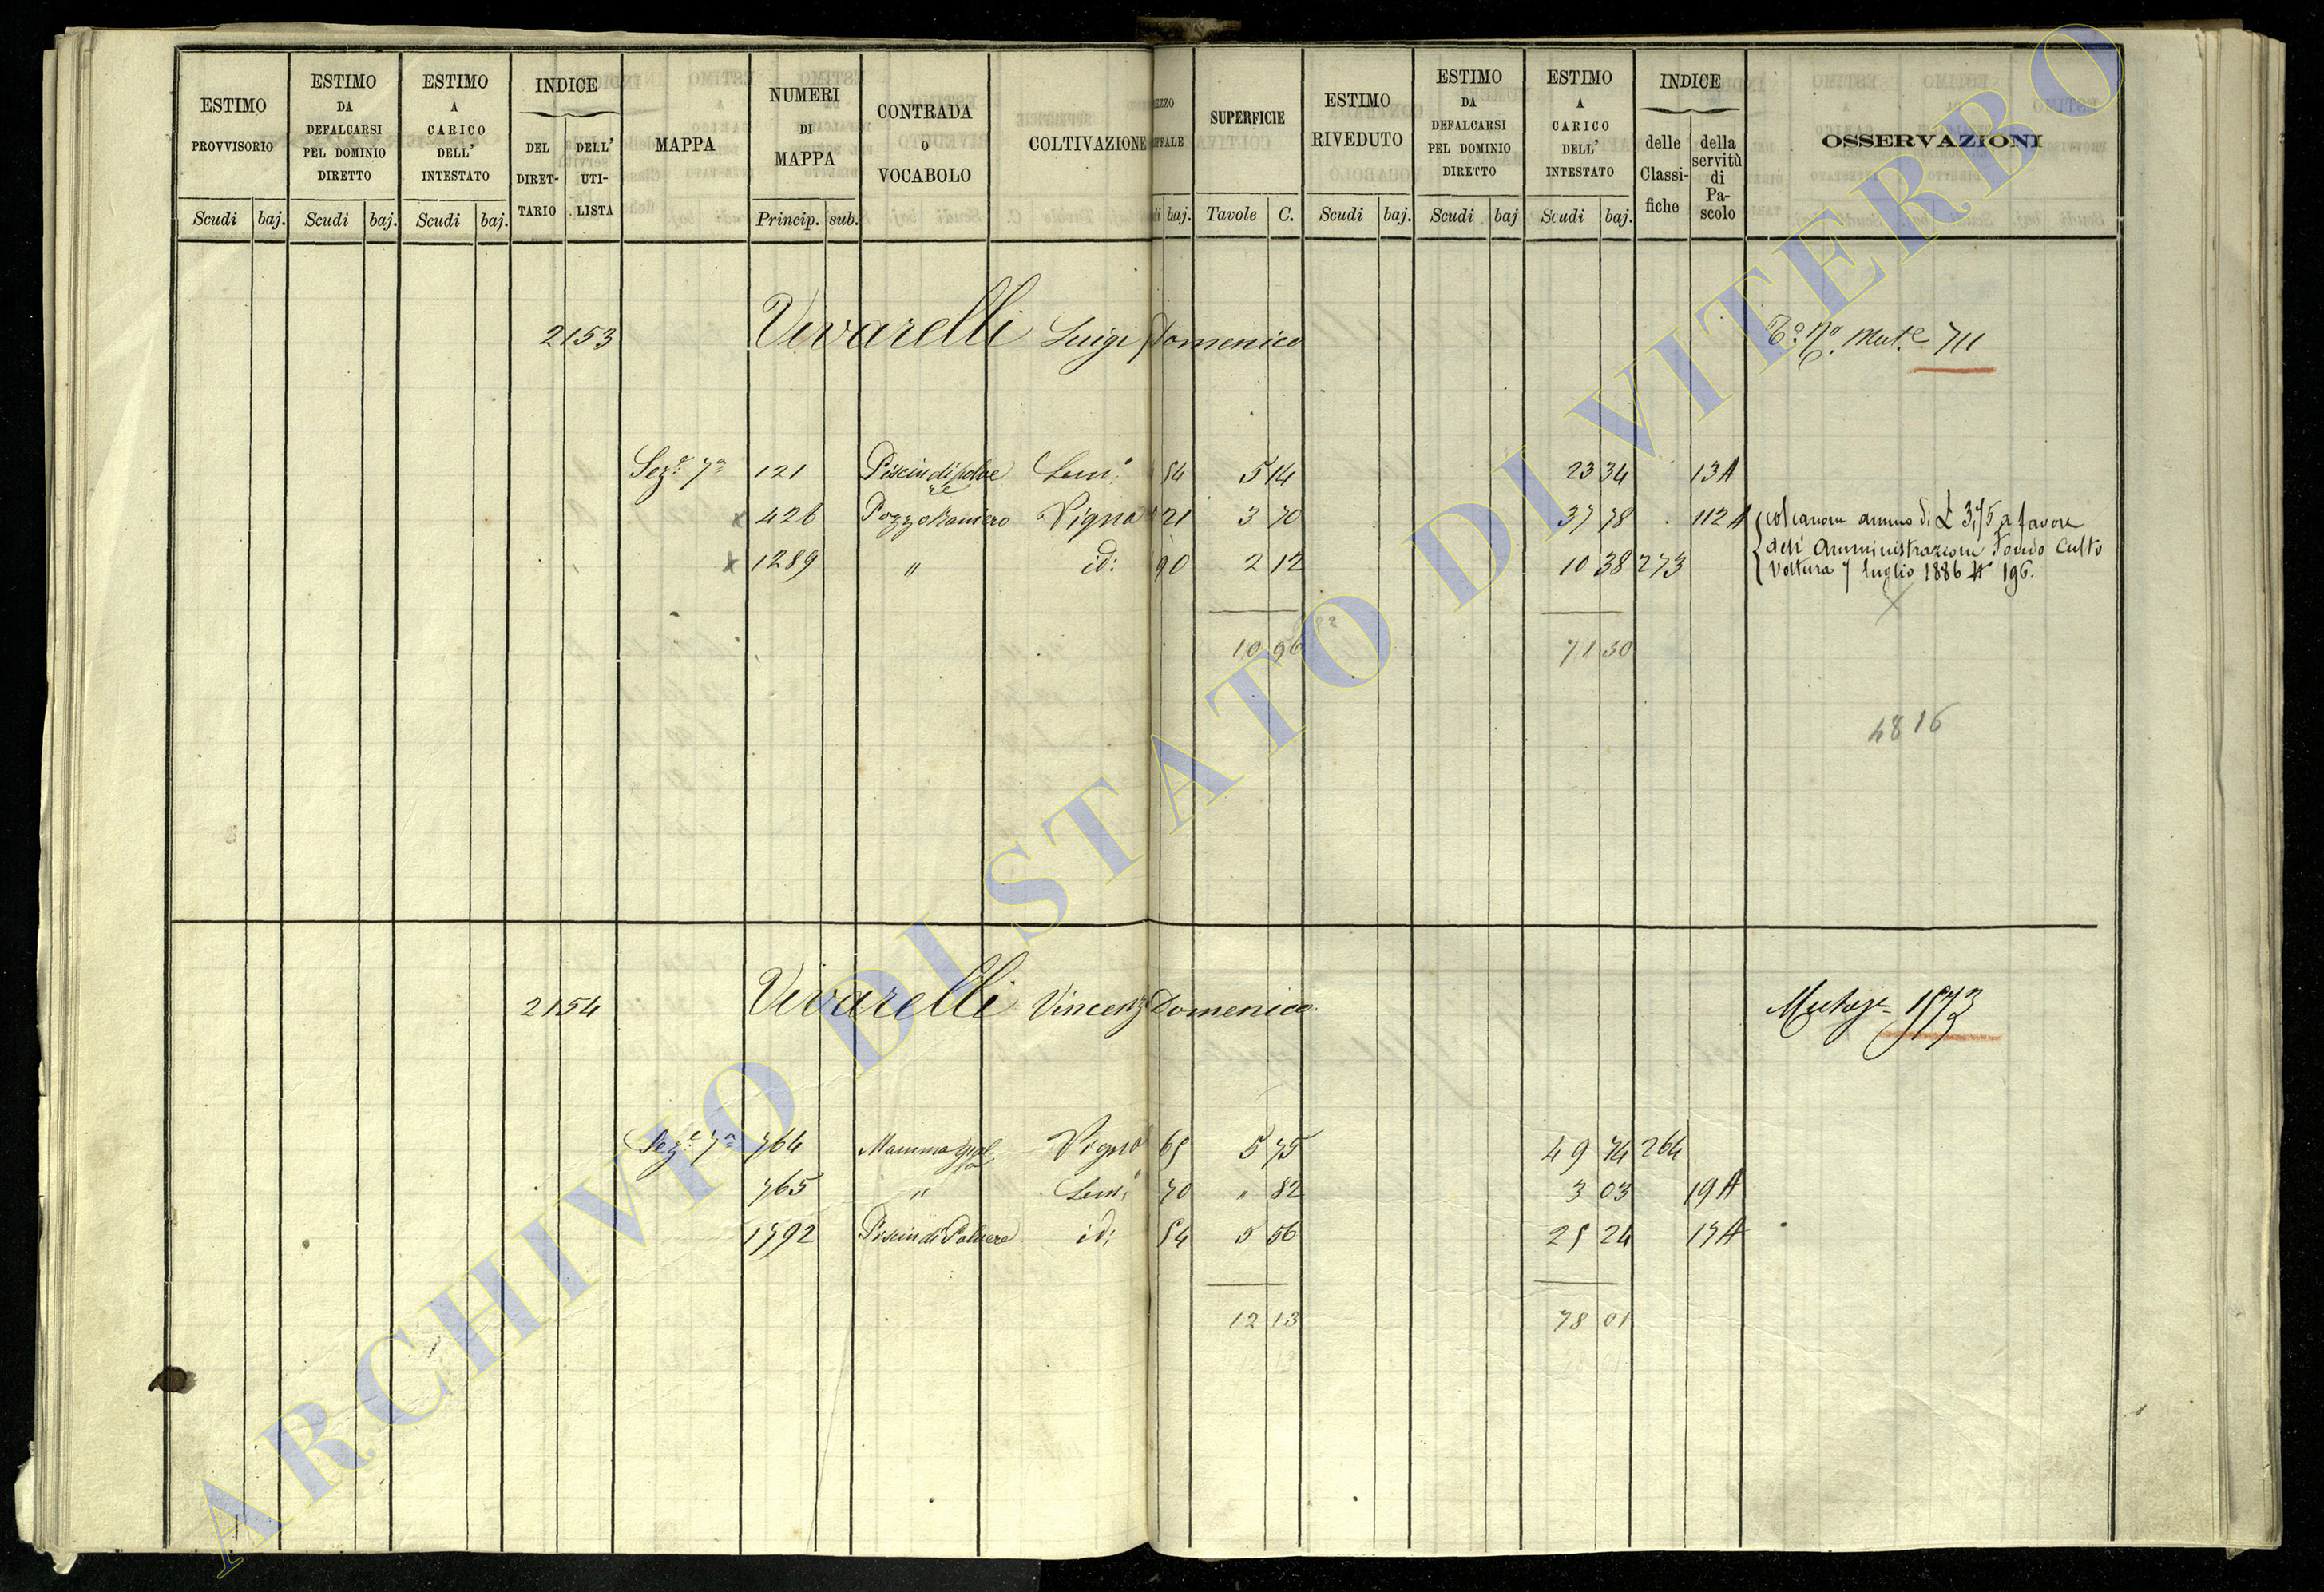 ESTIMO PROVVISORIO
ESTIMO DA DEFALCARSI PEL DOMINIO DIRETTO
ESTIMO A CARICO DELL' INTESTATO
INDICE
DEL DIRET-TARIO
DELL' UTI-LISTA
MAPPA
NUMERI DI MAPPA
CONTRADA O VOCABOLO
COLTIVAZIONE
SUPERFICIE
ESTIMO RIVEDUTO
ESTIMO DA DEFALCARSI PEL DOMINIO DIRETTO
ESTIMO A CARICO DELL' INTESTATO
INDICE
delle Classi-fiche
della servitù di Pa-scolo
OSSERVAZIONI
Scudi baj. Scudi baj. Scudi baj. Princip. sub. baj. Tavole C. Scudi baj. Scudi baj Scudi baj.
2153 Vivarelli Luigi Domenico 711
Sez.e 7a 121 54 5 14 23 34 13A
x 426 Pozzo Raniero Vigna 21 3 70 37 78 112A
col canone annuo di £ 3,75 a favore
dell' Amministrazione Fondo Culto
Voltura 7 luglio 1886 N 196.
x 1289 " id: 90 2 12 10 38 273
10 96 71 50
4816
2154 Vivarelli Vincenzo Domenico
Sez.e 7a 764 Vigna 65 5 75 49 74 264
765 " Sem: 70 " 82 3 03 19A
1792 id: 54 5 56 25 24 17A
12 13 78 01
ARCHIVIO DI STATO DI VITERBO